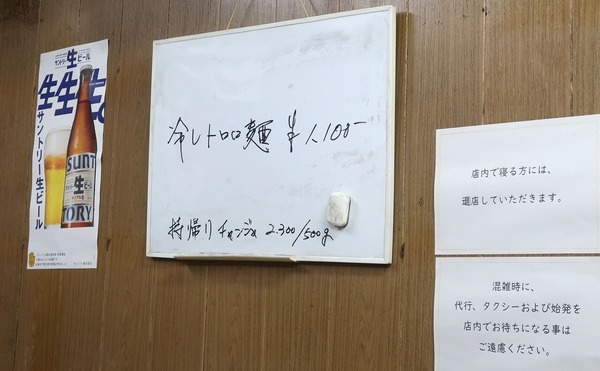 サントリー生ビール
生生生。
サントリー生ビール
SUNT
生
TORY
冷しトロロ麺 ¥1,100-
持帰りチャーシュー 2.300/500g
店内で寝る方には、
退店していただきます。
混雑時に、
代行、タクシーおよび始発を
店内でお待ちになる事は
ご遠慮ください。